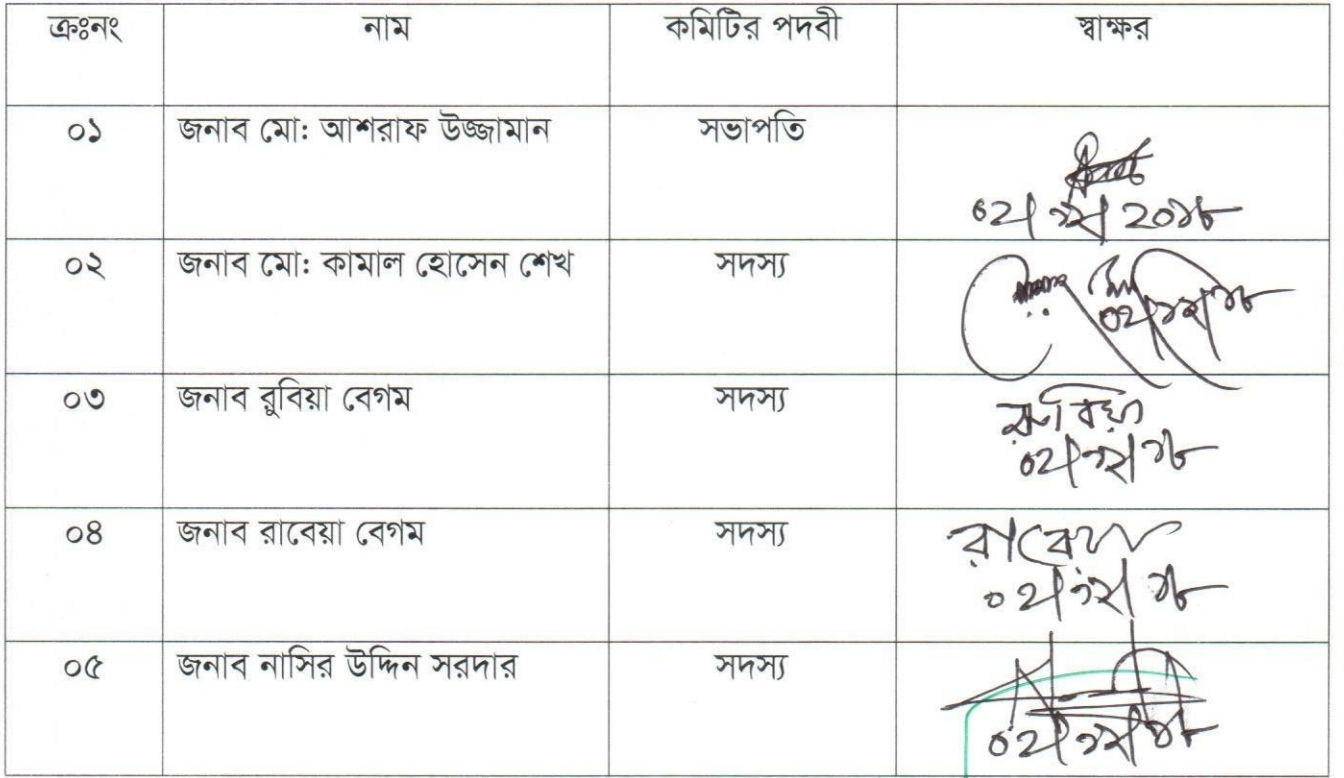 ক্রঃনং নাম কমিটির পদবী স্বাক্ষর
০১ জনাব মো: আশরাফ উজ্জামান সভাপতি
০২/১২/২০১৮
০২ জনাব মো: কামাল হোসেন শেখ সদস্য
০২/১২/১৮
০৩ জনাব রুবিয়া বেগম সদস্য রুবিয়া
০২/১২/১৮
০৪ জনাব রাবেয়া বেগম সদস্য রাবেয়া
০২/১২/১৮
০৫ জনাব নাসির উদ্দিন সরদার সদস্য
০২/১২/১৮